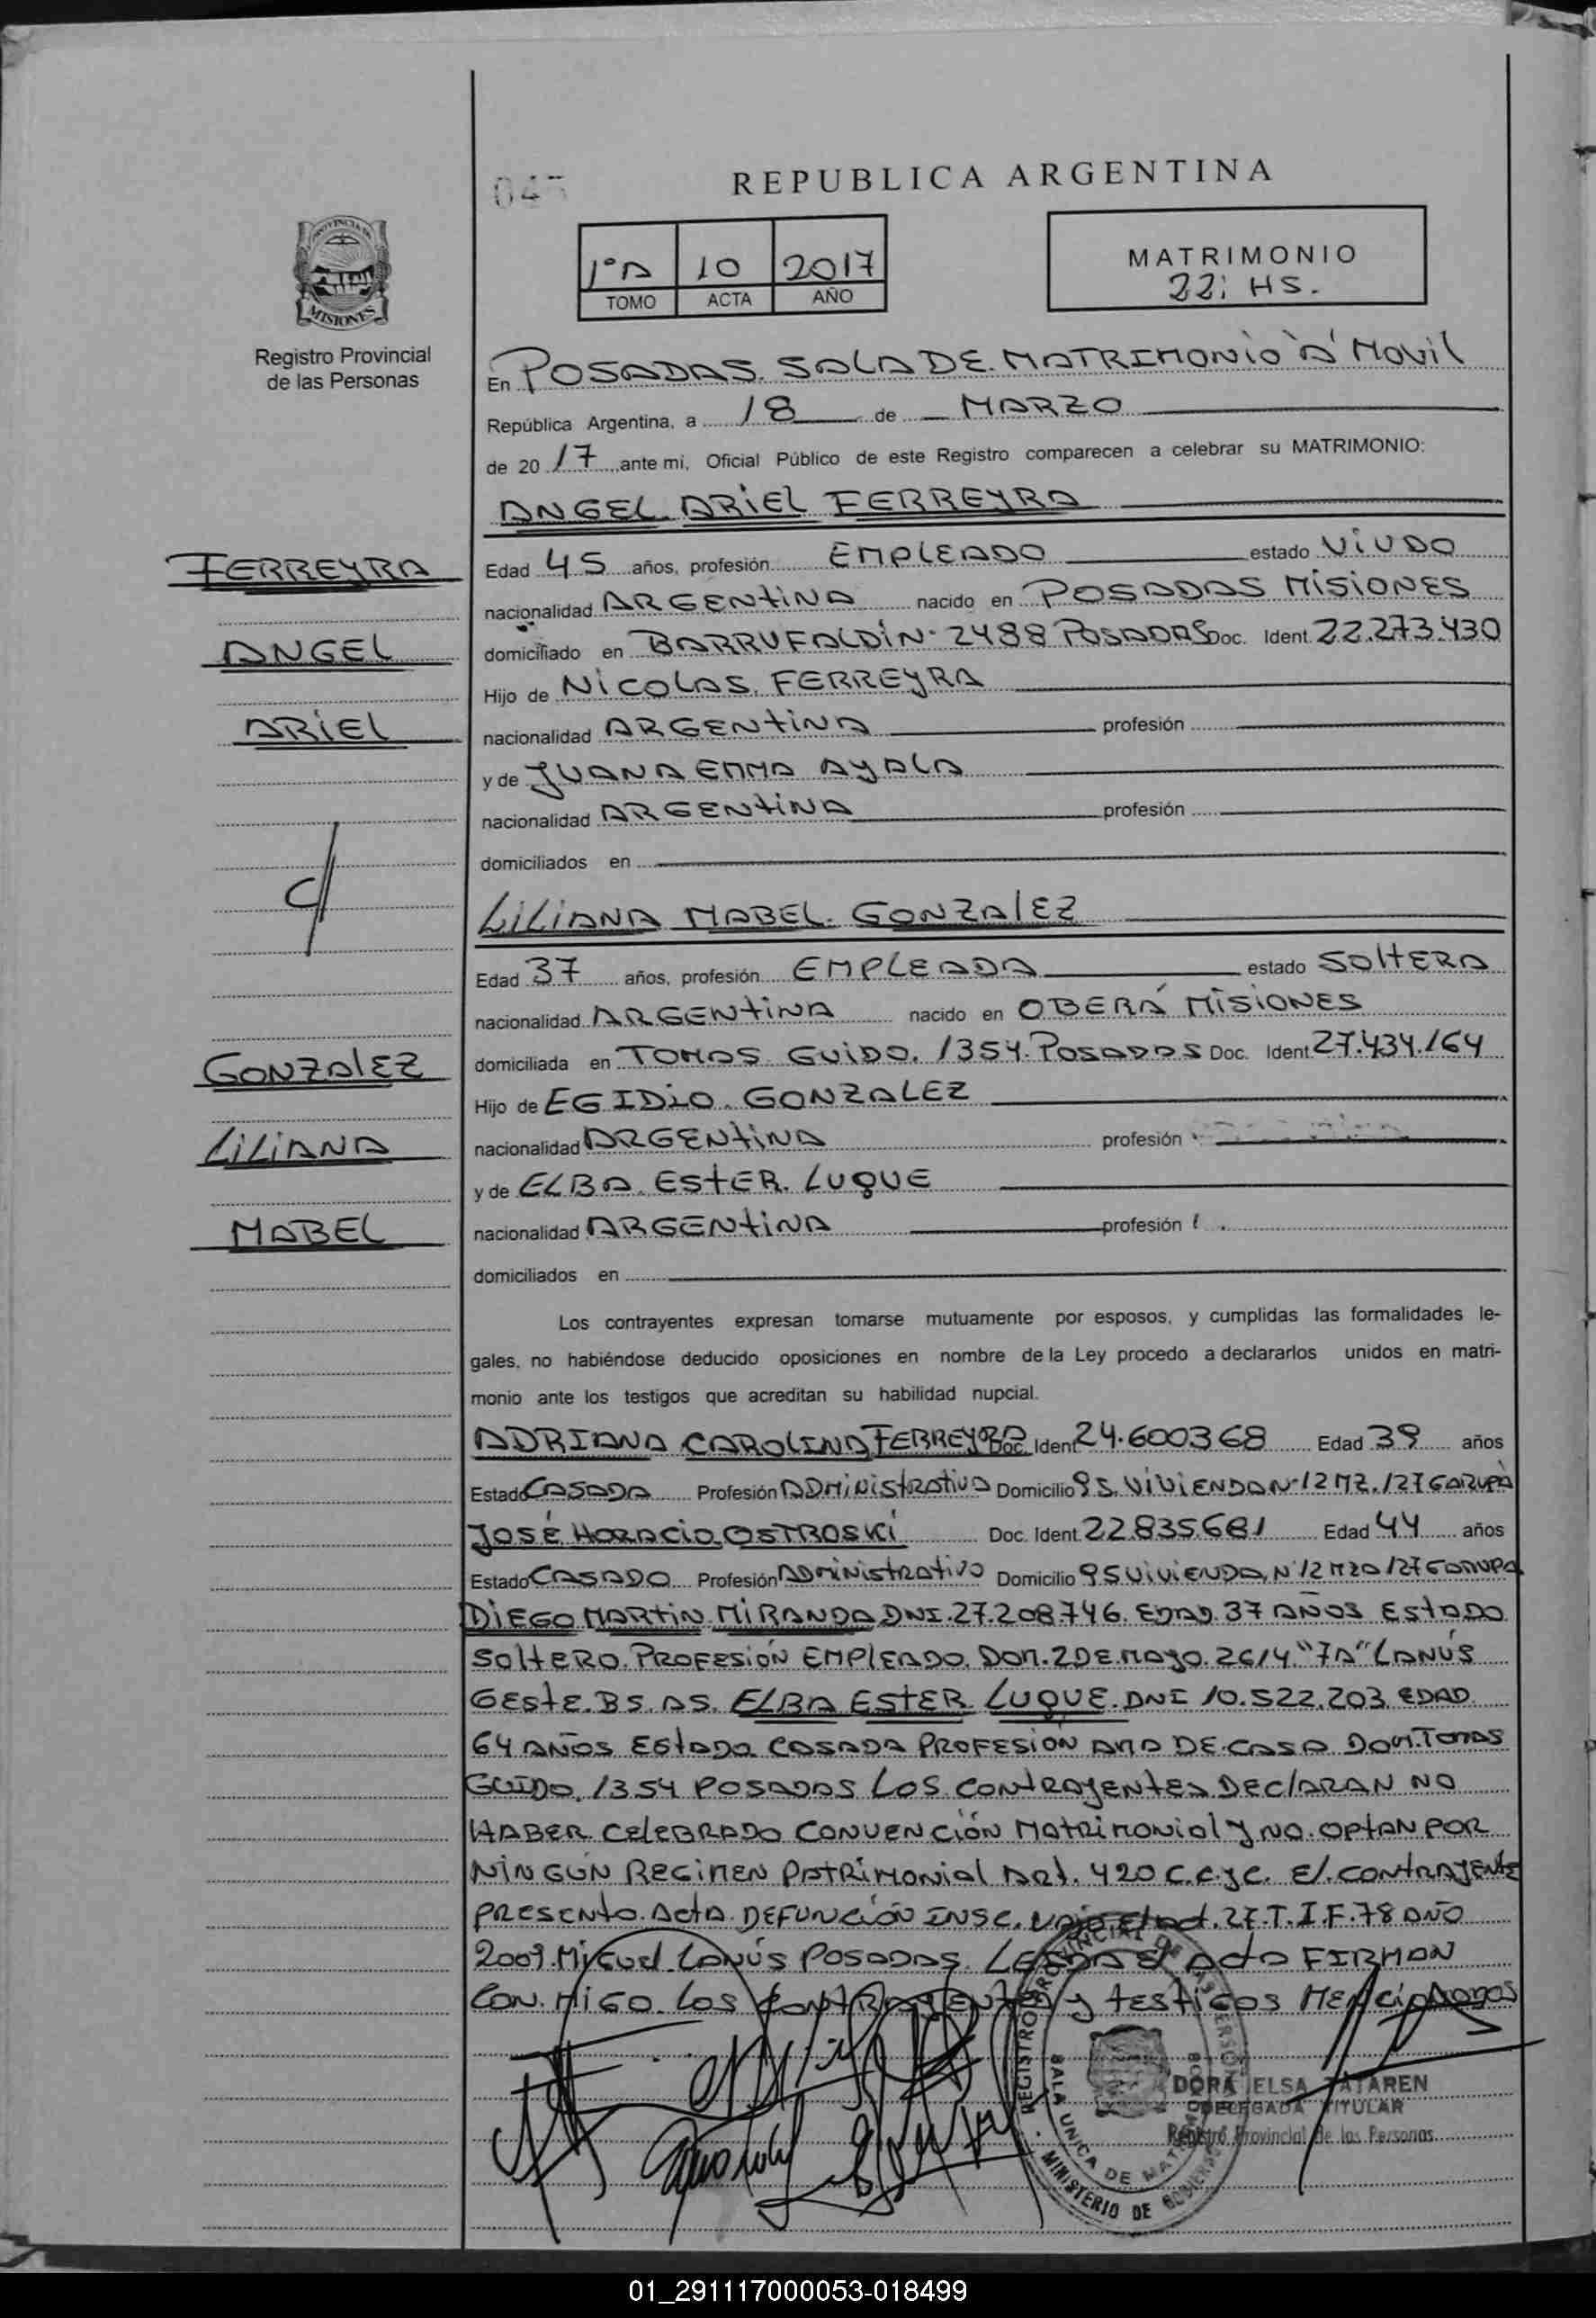 REPUBLICA ARGENTINA
MISIONES
Registro Provincial
de las Personas
1° A 10 2017
TOMO ACTA AÑO
MATRIMONIO
22: HS.
En POSADAS. SALA DE MATRIMONIO "A" MOVIL
República Argentina, a 18 de MARZO
de 20 17 ante mi, Oficial Público de este Registro comparecen a celebrar su MATRIMONIO:
ANGEL ARIEL FERREYRA
FERREYRA
ANGEL
ARIEL
c/
GONZALEZ
LILIANA
MABEL
Edad 45 años, profesión EMPLEADO estado VIUDO
nacionalidad ARGENTINA nacido en POSADAS MISIONES
domiciliado en BARRUFALDIN 2488 POSADAS Doc. Ident. 22.273.430
Hijo de NICOLAS FERREYRA
nacionalidad ARGENTINA profesión
y de JUANA EMMA AYALA
nacionalidad ARGENTINA profesión
domiciliados en
LILIANA MABEL GONZALEZ
Edad 37 años, profesión EMPLEADA estado SOLTERA
nacionalidad ARGENTINA nacido en OBERÁ MISIONES
domiciliada en TOMAS GUIDO. 1354. POSADAS Doc. Ident 27.434.164
Hijo de EGIDIO GONZALEZ
nacionalidad ARGENTINA profesión
y de ELBA ESTER LUQUE
nacionalidad ARGENTINA profesión
domiciliados en
Los contrayentes expresan tomarse mutuamente por esposos, y cumplidas las formalidades le-
gales, no habiéndose deducido oposiciones en nombre de la Ley procedo a declararlos unidos en matri-
monio ante los testigos que acreditan su habilidad nupcial.
ADRIANA CAROLINA FERREYRA Doc. Ident 24.600368 Edad 39 años
Estado CASADA Profesión ADMINISTRATIVA Domicilio 95. VIVIENDA N° 12 MZ. 127 GARUPÀ
JOSÉ HORACIO OSTROSKI Doc. Ident. 22.835681 Edad 44 años
Estado CASADO Profesión ADMINISTRATIVO Domicilio 95 VIVIENDA N° 12 MZA 127 GARUPA
DIEGO MARTIN MIRANDA DNI. 27.208.746. EDAD 37 AÑOS ESTADO
SOLTERO. PROFESIÓN EMPLEADO. DOM. 2 DE MAYO. 2614. "7A" LANÚS
OESTE. BS. AS. ELBA ESTER LUQUE. DNI 10.522.203 EDAD
64 AÑOS ESTADO CASADA PROFESIÓN AMA DE CASA DOM. TOMAS
GUIDO. 1354 POSADAS LOS CONTRAYENTES DECLARAN NO
HABER CELEBRADO CONVENCIÓN MATRIMONIAL Y NO OPTAN POR
NINGÚN REGIMEN PATRIMONIAL ART. 420 C.C.y C. El CONTRAYENTE
PRESENTO ACTA DEFUNCIÓN INSC. bajo el act. 27. T. I. F. 78 AÑO
2009. MIGUEL LANÚS POSADAS. LEIDA el ACTA FIRMAN
CON MIGO LOS CONTRAYENTES y TESTIGOS MENCIONADOS
REGISTRO PROVINCIAL DE LAS PERSONAS
SALA UNICA DE MATRIMONIOS
MINISTERIO DE GOBIERNO
DORA ELSA TATAREN
DELEGADA TITULAR
Registro Provincial de las Personas
01_291117000053-018499